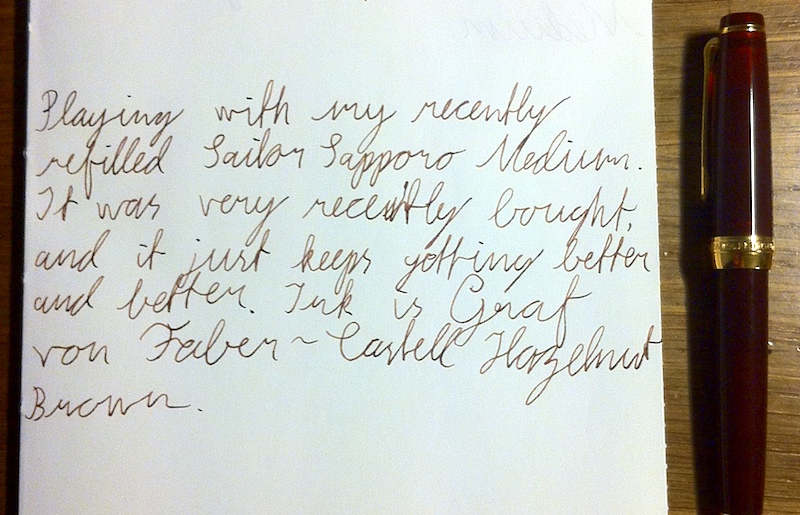 Playing with my recently
refilled Sailor Sapporo Medium.
It was very recently bought,
and it just keeps getting better
and better. Ink is Graf
von Faber-Castell Hazelnut
Brown.
Medium